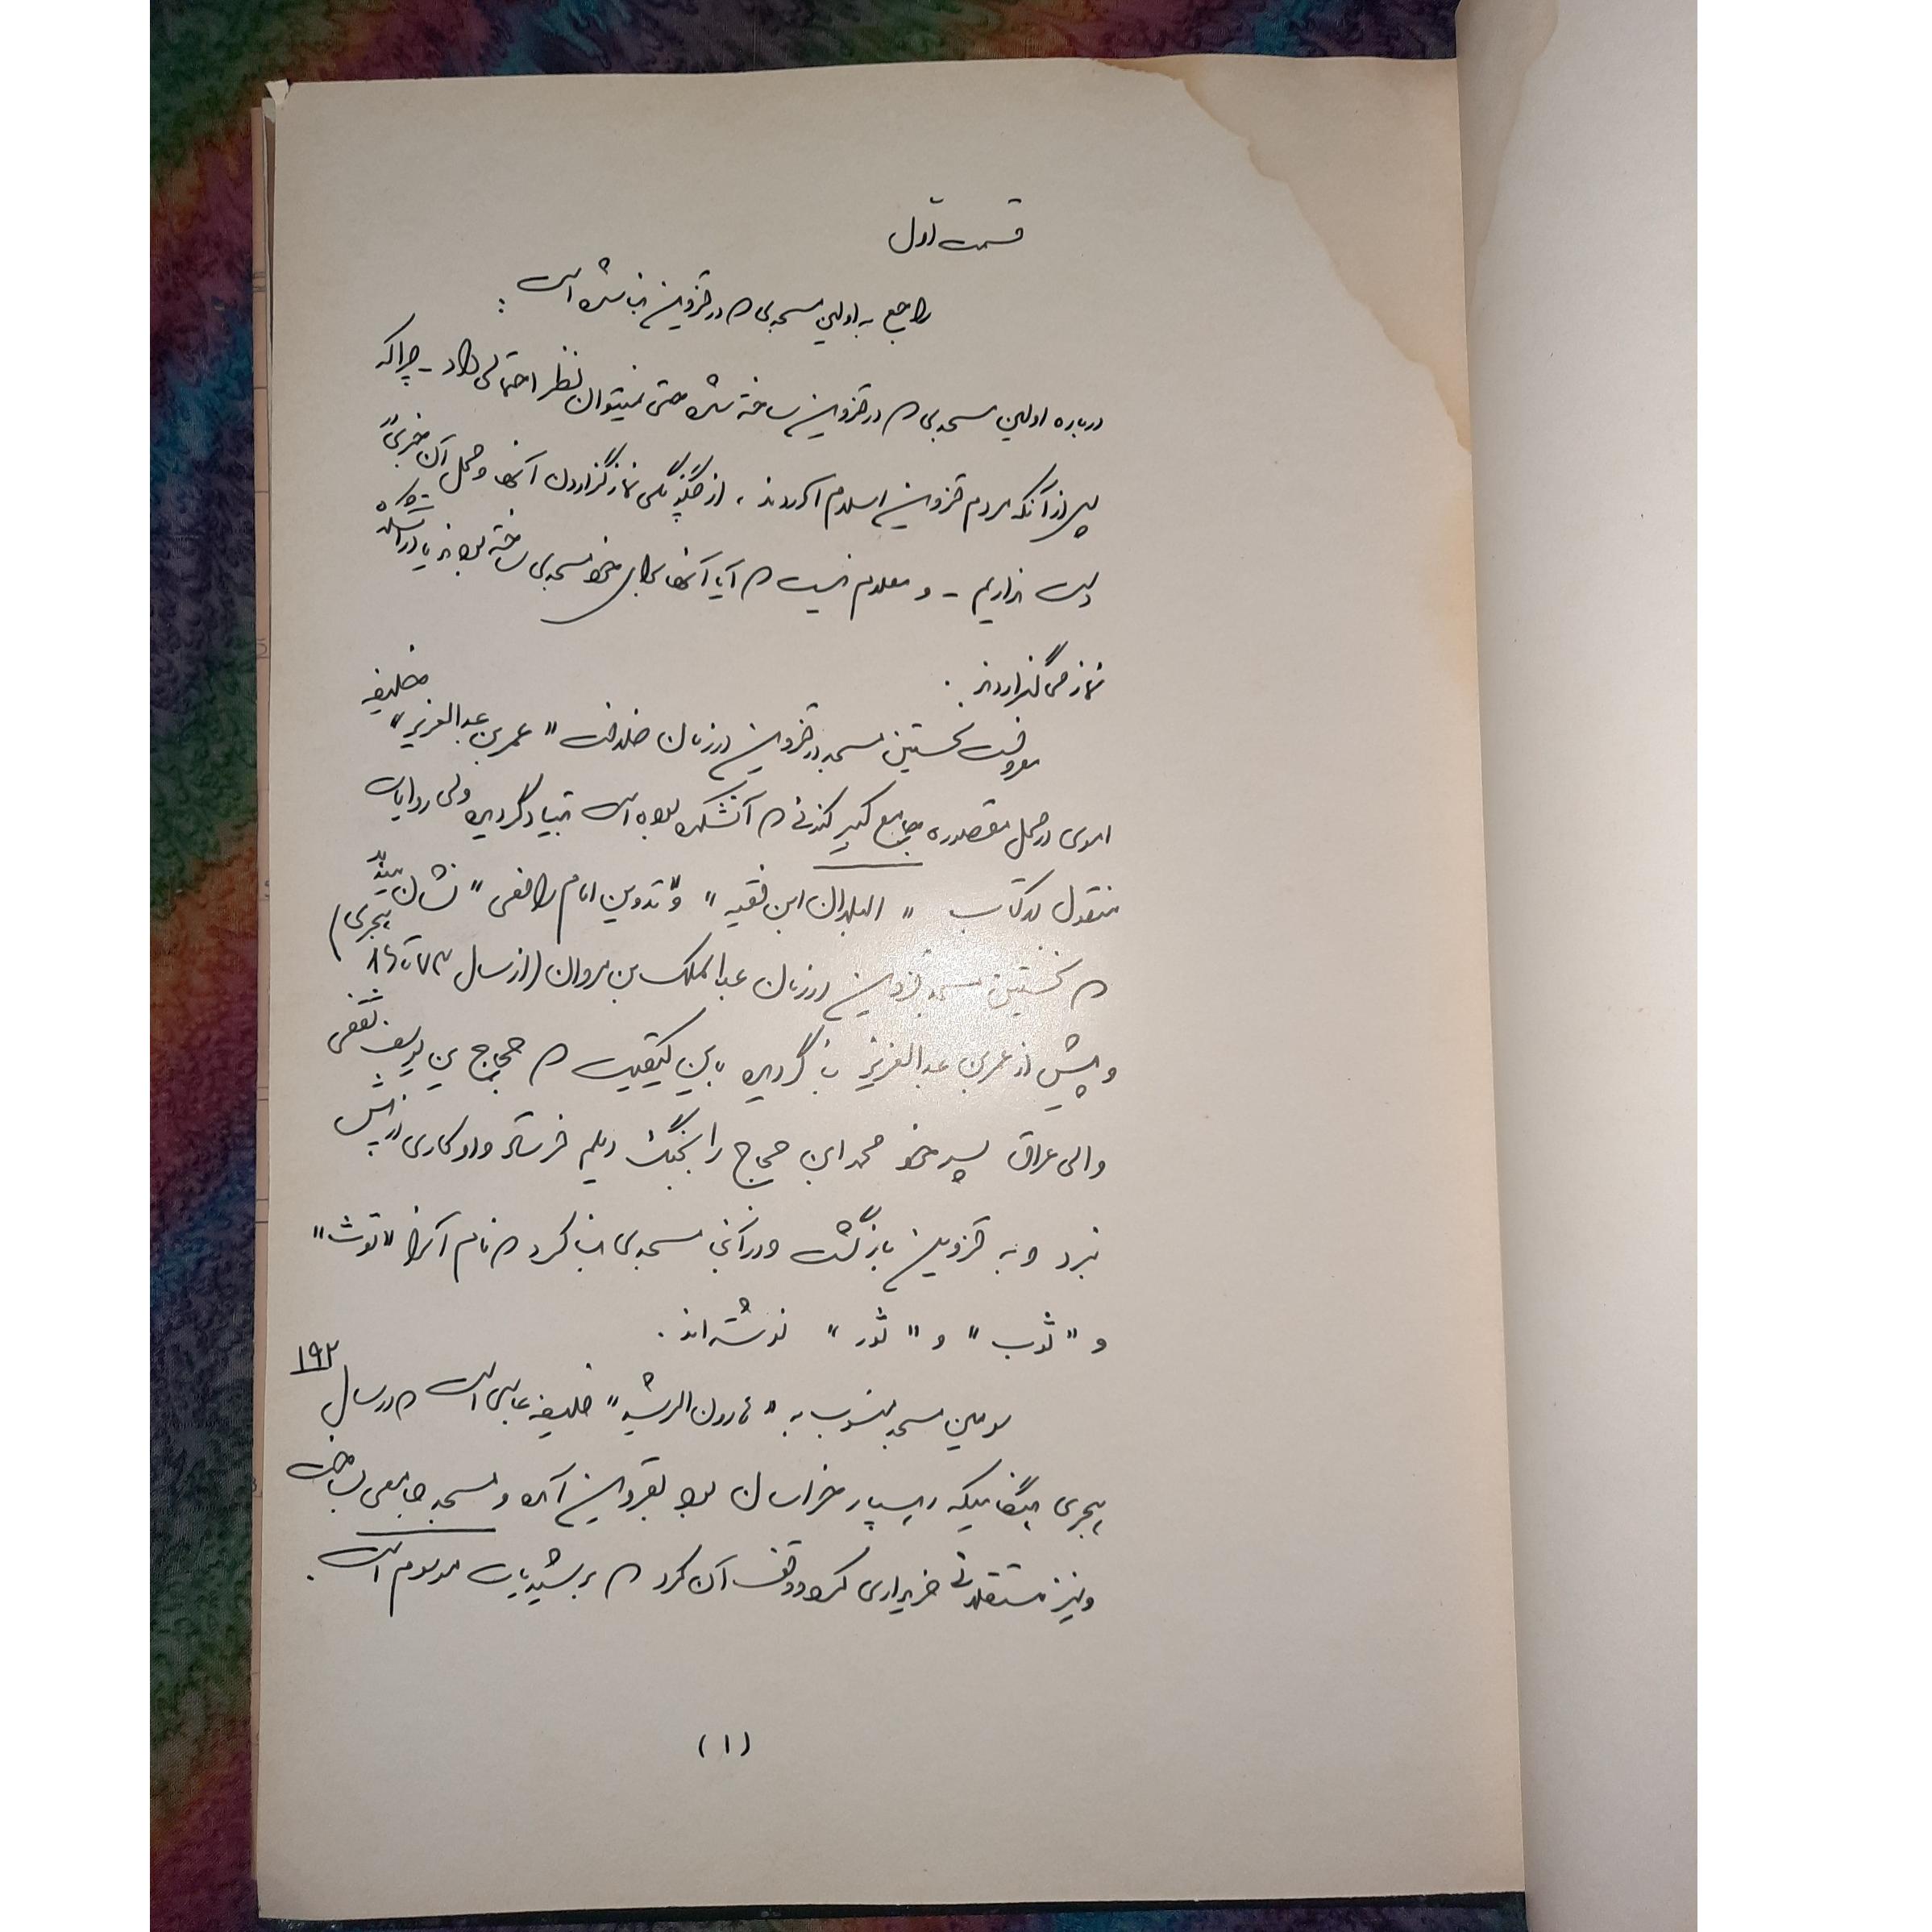 قسمت اوّل
راجع به اولین مسجدی که در قزوین بنا شده است :
درباره اولین مسجدی که در قزوین ساخته شده حتی نمیتوان نظر احتمالی داد - چرا که
پس از آنکه مردم قزوین اسلام آوردند ، از چگونگی نماز گزاردن آنها و محل آن خبری
در دست نداریم - و معلوم نیست که آیا آنها برای خود مسجدی ساخته بودند یا در آتشکده
نماز می گزاردند .
معروفست نخستین مسجد در قزوین در زمان خلافت " عمر بن عبدالعزیز " خلیفه
اموی در محل مقصوره جامع کبیر کنونی که آتشکده بوده است بنیاد گردیده ولی روایات
منقول در کتاب " البلدان ابن فقیه " و " تدوین امام رافعی " نشان میدهد
که نخستین مسجد قزوین در زمان عبدالملک بن مروان ( از سال ۷۳ تا ۸۶ هجری )
و پیش از عمر بن عبدالعزیز بنا گردیده باین کیفیت که حجاج بن یوسف ثقفی
والی عراق پسر خود محمد ابن حجاج را بجنگ دیلم فرستاد و او کاری از پیش
نبرد و به قزوین بازگشت و در آنجا مسجدی بنا کرد که نام آنرا " توث "
و " ثوب " و " ثور " نوشته اند .
سومین مسجد منسوب به " هارون الرشید " خلیفه عباسی است که در سال ۱۹۲
هجری هنگامیکه رهسپار خراسان بود بقزوین آمد و مسجد جامعی بساخت
و نیز مستغلاتی خریداری کرد و وقف آن کرد که برشیدیات موسوم است .
( ۱ )